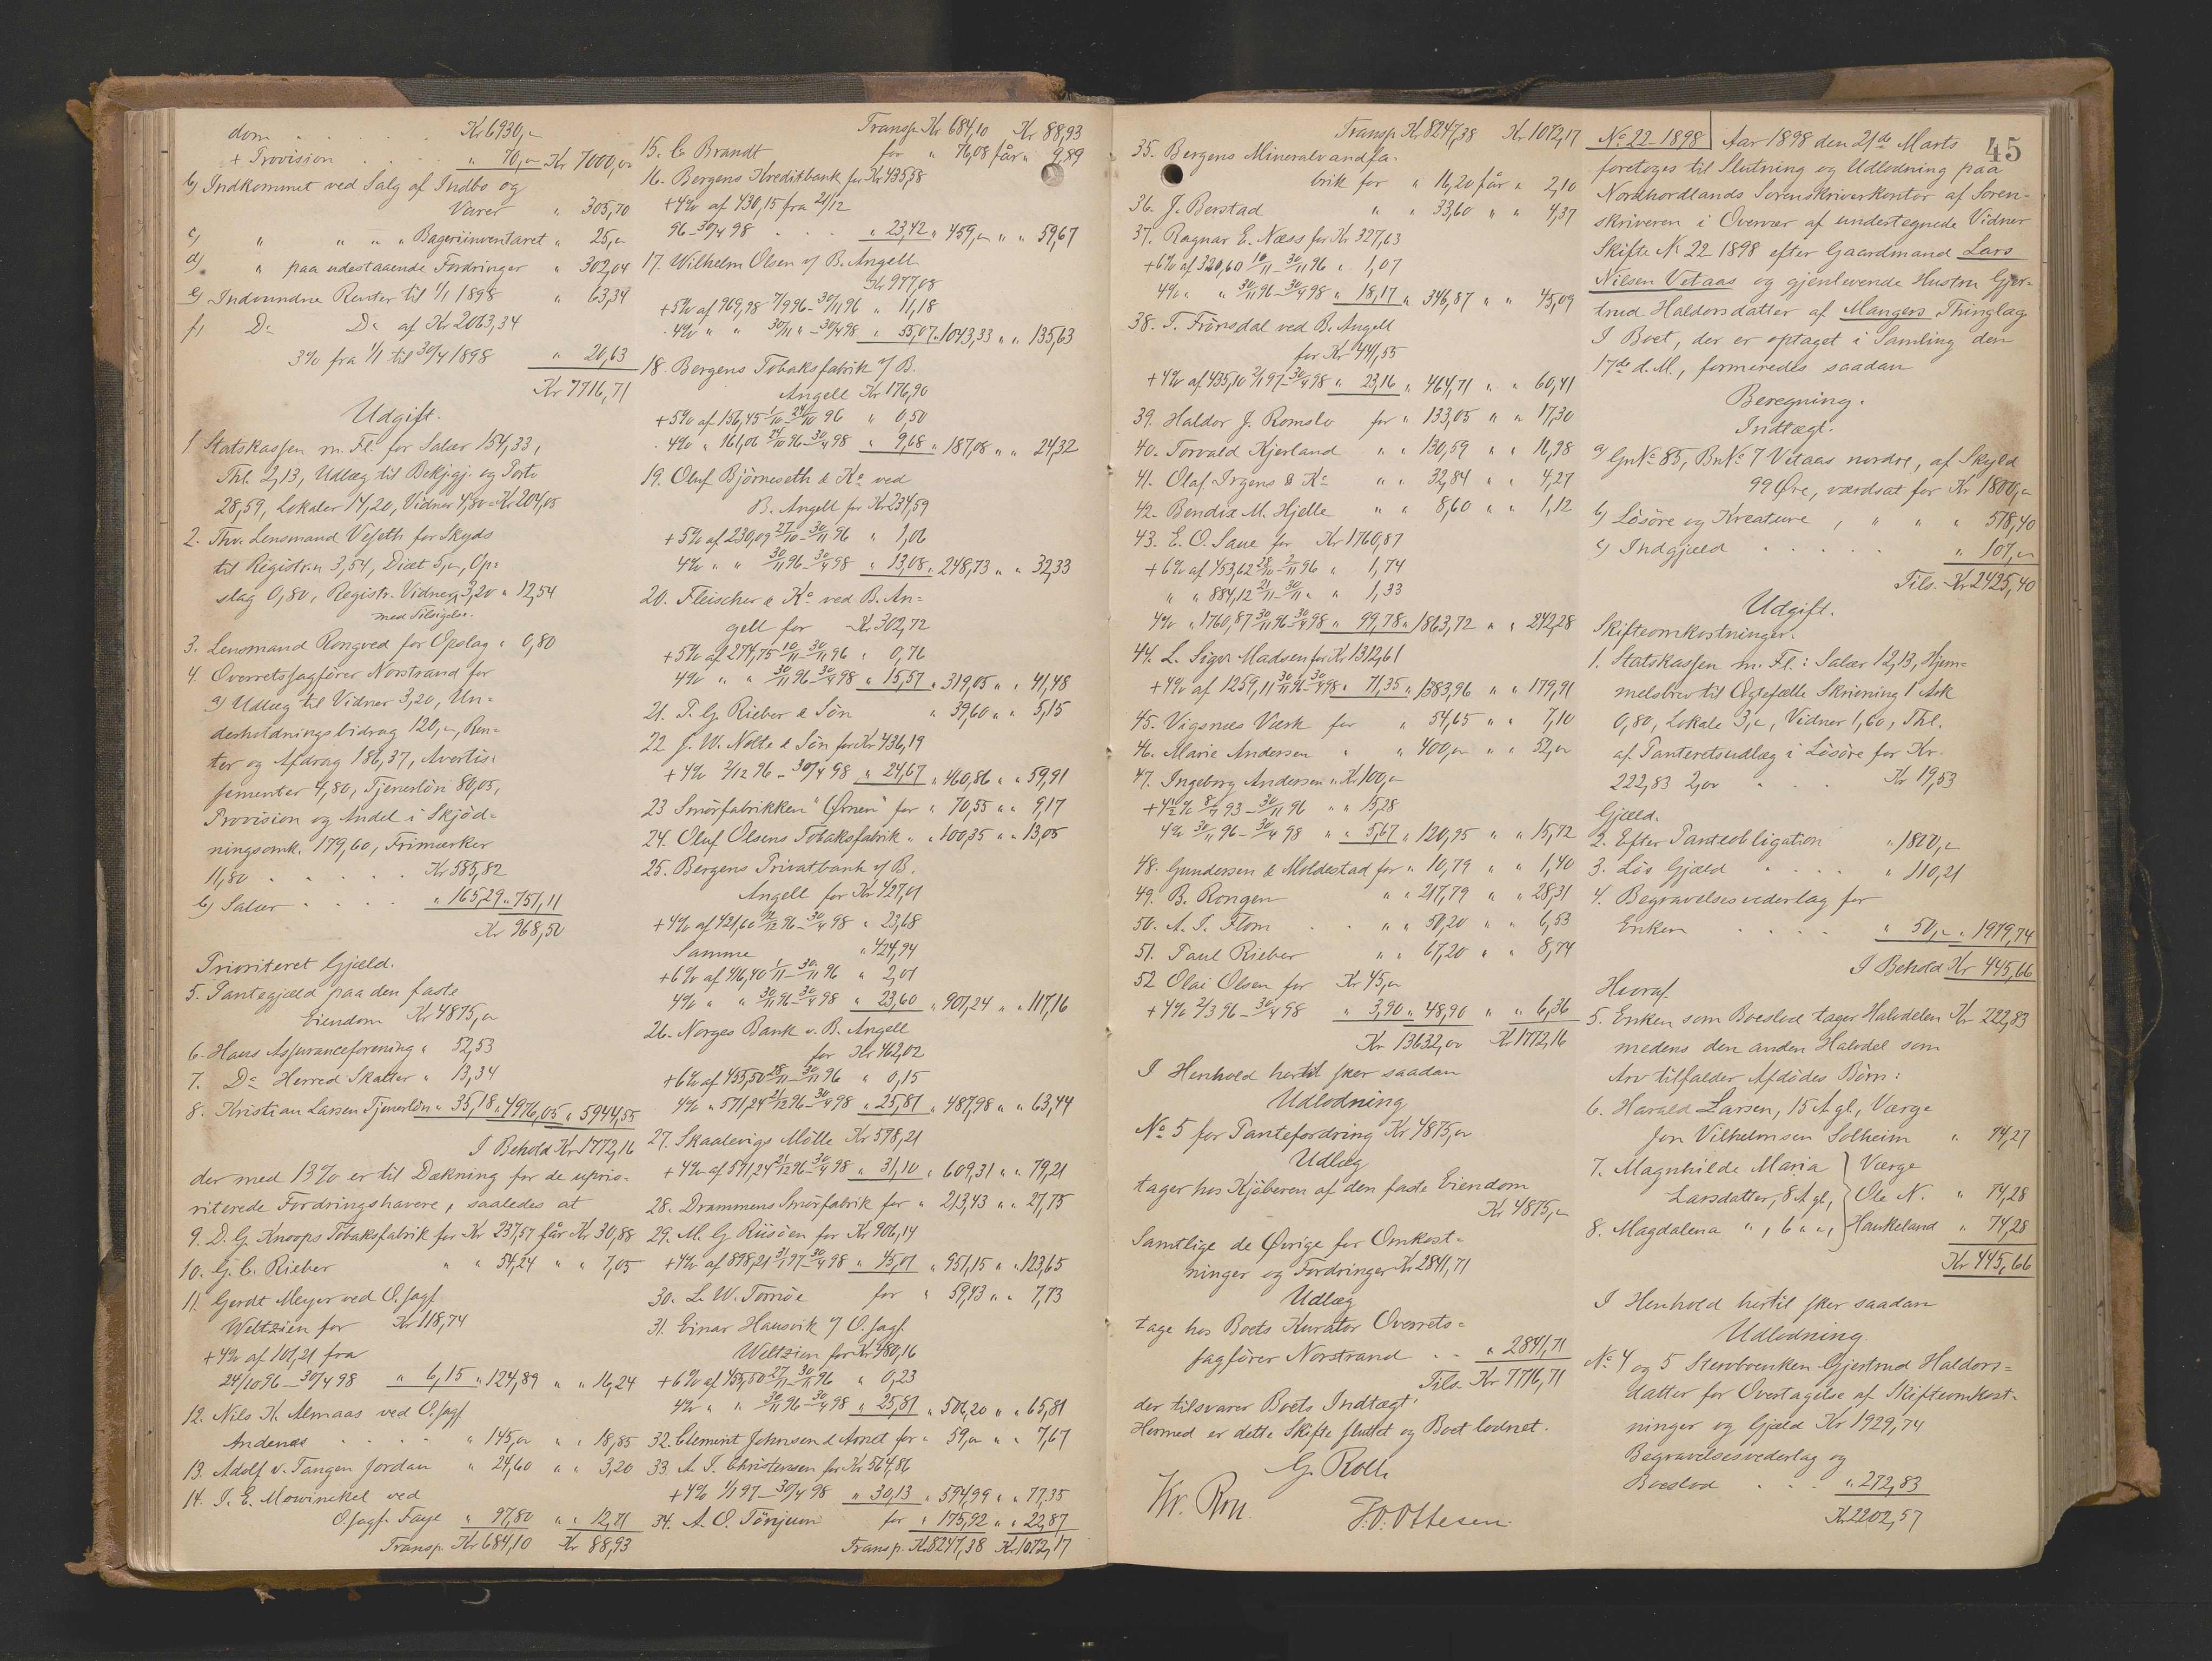 dom . . . . Kr 6930,-
+ Provision . . . " 70,- Kr 7000,-
b) Indkommet ved Salg af Indbo og
Varer " 305,70
c) " " " " Bageriinventaret " 25,-
d) " paa udestaaende Fordringer " 302,04
e) Indvundne Renter til 1/1 1898 " 63,34
f) Do Do af Kr 2063,34
3% fra 1/1 til 30/4 1898 " 20,63
Kr 7716,71
Udgift.
1 Statskassen m. Fl. for Salær 154,33,
Thl. 2,13, Udlæg til Bekjgj. og Porto
28,59, Lokaler 14,20, Vidner 4,80 = Kr 204,05
2. Thv. Lensmand Veseth for Skyds
til Registr.n 3,54, Diæt 5,-, Op=
slag 0,80, Registr. Vidner 3,20 " 12,54
med Tilsigelse.
3. Lensmand Rongved for Opslag " 0,80
4. Overretssagfører Norstrand for
a) Udlæg til Vidner 3,20, Un=
derholdningsbidrag 120,-, Ren=
ter og Afdrag 186,37, Avertis=
sementer 4,80, Tjenerløn 80,05,
Provision og Andel i Skjød=
ningsomk. 179,60, Frimærker
11,80 . . . . . Kr 585,82
b) Salær . . . . " 165,29 " 751,11
Kr 968,50
Prioriteret Gjæld.
5. Pantegjæld paa den faste
Eiendom Kr 4875,-
6. Haus Assuranceforening " 52,53
7. Do Herred Skatter " 13,34
8. Kristian Larsen Tjenerløn " 35,18 " 4976,05 " 5944,55
I Behold Kr 1772,16
der med 13% er til Dækning for de uprio=
riterede Fordringshavere, saaledes at
9. D. G. Knoops Tobaksfabrik for Kr 237,57 får Kr 30,88
10. G. C. Rieber " " 54,24 " " 7,05
11. Gerdt Meyer ved O.sagf.
Weltzien for Kr 118,74
+ 4% af 101,21 fra
24/10 96 - 30/4 98 " 6,15 " 124,89 " " 16,24
12. Nils K. Almaas ved O.sagf.
Andenæs . . . . " 145,- " " 18,85
13. Adolf v. Tangen Jordan " 24,60 " " 3,20
14. I. E. Mowinckel ved
O.sagf. Faye " 97,80 " " 12,71
Transp. Kr 684,10 Kr 88,93
Transp. Kr 684,10 Kr 88,93
15. C Brandt for " 76,08 får " 9,89
16. Bergens Kreditbank for Kr 435,58
+ 4% af 430,15 fra 21/12
96 - 30/4 98 . . . " 23,42 " 459,- " " 59,67
17. Wilhelm Olsen v/ B. Angell
Kr 977,08
+ 5% af 969,98 7/9 96 - 30/11 96 " 11,18
4% " " 30/11 " - 30/4 98 " 55,07 " 1043,33 " " 135,63
18. Bergens Tobaksfabrik v/ B.
Angell Kr 176,90
+ 5% af 156,45 1/10 - 24/10 96 " 0,50
4% " 161,06 24/10 96 - 30/4 98 " 9,68 " 187,08 " " 24,32
19. Oluf Bjørneseth & Ko ved
B. Angell for Kr 234,59
+ 5% af 230,09 27/10 - 30/11 96 " 1,06
4% " " 30/11 96 - 30/4 98 " 13,08 " 248,73 " " 32,33
20. Fleischer & Ko ved B. An=
gell for Kr 302,72
+ 5% af 274,75 10/11 - 30/11 96 " 0,76
4% " " 30/11 96 - 30/4 98 " 15,57 " 319,05 " " 41,48
21. P. G. Rieber & Søn " 39,60 " " 5,15
22 J. W. Nolte & Søn for Kr 436,19
+ 4% 2/12 96 - 30/4 98 " 24,67 " 460,86 " " 59,91
23 Smørfabrikken "Ørnen" for " 70,55 " " 9,17
24. Oluf Olsens Tobaksfabrik " " 100,35 " " 13,05
25. Bergens Privatbank v/ B.
Angell for Kr 427,01
+ 4% af 421,60 12/12 96 - 30/4 98 " 23,68
Samme " 424,94
+ 6% af 416,40 1/11 - 30/11 96 " 2,01
4% " " 30/11 96 - 30/4 98 " 23,60 " 901,24 " " 117,16
26. Norges Bank v. B. Angell
for Kr 462,02
+ 6% af 455,50 28/11 - 30/11 96 " 0,15
4% " 571,24 21/12 96 - 30/4 98 " 25,81 " 487,98 " " 63,44
27. Skaalevigs Mølle Kr 578,21
+ 4% af 571,24 21/12 96 - 30/4 98 " 31,10 " 609,31 " " 79,21
28. Drammens Smørfabrik for " 213,43 " " 27,75
29. M. G Riisøen for Kr 906,14
+ 4% af 898,21 31/1 97 - 30/4 98 " 45,01 " 951,15 " " 123,65
30. L. W. Tornøe for " 59,43 " " 7,73
31. Einar Hausvik v/ O.sagf.
Weltzien for Kr 480,16
+ 6% af 455,50 27/11 - 30/11 96 " 0,23
4% " " 30/11 96 - 30/4 98 " 25,81 " 506,20 " " 65,81
32. Clement Johnsen & Aond for " 59,- " " 7,67
33. A I. Christensen for Kr 564,86
+ 4% 1/1 97 - 30/4 98 " 30,13 " 594,99 " " 77,35
34. A. O. Tönjum for " 175,92 " " 22,87
Transp. Kr 8247,38 Kr 1072,17
Transp Kr 8247,38 Kr 1072,17
35. Bergens Mineralvandfa-
brik for " 16,20 får " 2,10
36. J. Berstad " " 33,60 " " 4,37
37. Ragnar E. Næss for Kr 327,63
+ 6% af 320,60 10/11 - 30/11 96 " 1,07
4% " " 30/11 96 - 30/4 98 " 18,17 " 346,87 " " 45,09
38. T. Frønsdal ved B. Angell
for Kr 441,55
+ 4% af 435,10 2/1 97 - 30/4 98 " 23,16 " 464,71 " " 60,41
39. Haldor J. Romslo for " 133,05 " " 17,30
40. Torvald Kjerland " " 130,59 " " 16,98
41. Olaf Irgens & Ko " " 32,84 " " 4,27
42. Bendix M. Hjelle " " 8,60 " " 1,12
43. E. O. Saue for Kr 1760,87
+ 6% af 453,62 28/10 - 2/11 96 " 1,74
" " 884,12 21/11 - 30/11 " " 1,33
4% " 1760,87 30/11 96 - 30/4 98 " 99,78 " 1863,72 " " 242,28
44. L. Sigv. Madsen for Kr 1312,61
+ 4% af 1259,11 30/11 96 - 30/4 98 " 71,35 " 1383,96 " " 179,91
45. Vigsnes Værk for " 54,65 " " 7,10
46. Marie Andersen " " 400,- " " 52,-
47. Ingeborg Andersen " Kr 100,-
+ 4 1/2 % 8/7 93 - 30/11 96 " " 15,28
4% 30/11 96 - 30/4 98 " " 5,67 " 120,95 " " 15,72
48. Gundersen & Moldestad for " 10,79 " " 1,40
49. B. Rongen " " 217,79 " " 28,31
50. A. I. Flom . . " " 50,20 " " 6,53
51. Paul Rieber " " 67,20 " " 8,74
52 Olai Olsen for Kr 45,-
+ 4% 2/3 96 - 30/4 98 " 3,90 " 48,90 " " 6,36
Kr 13632,00 Kr 1772,16
I Henhold hertil sker saadan
Udlodning
No 5 for Pantefordring Kr 4875,-
Udlæg
tager hos Kjøberen af den faste Eiendom
Kr 4875,-
Samtlige de Øvrige for Omkost=
ninger og Fordringer Kr 2841,71
Udlæg
tage hos Boets Kurator Overrets=
sagfører Norstrand . . " 2841,71
Tils. Kr 7716,71
der tilsvarer Boets Indtægt.
Hermed er dette Skifte sluttet og Boet lodnet.
G. Roll.
J. O. Ottesen.
45
No 22-1898 Aar 1898 den 21de Marts
foretoges til Slutning og Udlodning paa
Nordhordlands Sorenskriverkontor af Soren=
skriveren i Overvær af undertegnede Vidner
Skifte No 22 1898 efter Gaardmand Lars
Nilsen Vetaas og gjenlevende Hustru Gjer=
trud Haldorsdatter af Mangers Thinglag
I Boet, der er optaget i Samling den
17de d. M., formeredes saadan
Beregning.
Indtægt.
a) Gn No 85, Bn No 7 Vetaas nordre, af Skyld
99 Øre, værdsat for Kr 1800,-
b) Løsøre og Kreature , " " " 518,40
c) Indgjæld . . . . . " 107,-
Tils. Kr 2425,40
Udgift.
Skifteomkostninger.
1. Statskassen m. Fl.: Salær 12,13, Hjem=
melsbrev til Ægtefælle Skrivning 1 Ark
0,80, Lokale 3,-, Vidner 1,60, Thl.
af Panteretsudlæg i Løsøre for Kr.
222,83 2,00 . . . Kr 19,53
Gjæld.
2. Efter Panteobligation " 1800,-
3. Løs Gjæld . . . . " 110,21
4. Begravelsesvederlag for
Enken . . . . " 50,- " 1979,74
I Behold Kr 445,66
Hvoraf
5. Enken som Boeslod tager Halvdelen Kr 222,83
medens den anden Halvdel som
Arv tilfalder Afdødes Børn:
6. Harald Larsen, 15 A gl., Værge
Jon Vilhelmsen Solheim " 74,27
7. Magnhilde Maria } Værge
Larsdatter, 8 A gl., } Ole N. " 74,28
8. Magdalena " , 6 " ", } Haukeland " 74,28
Kr 445,66
I Henhold hertil sker saadan
Udlodning.
No 4 og 5 Stervboenken Gjertrud Haldors=
datter for Overtagelse af Skifteomkost-
ninger og Gjæld Kr 1929,74
Begravelsesvederlag og
Boeslod . . . " 272,83
Kr 2202,57